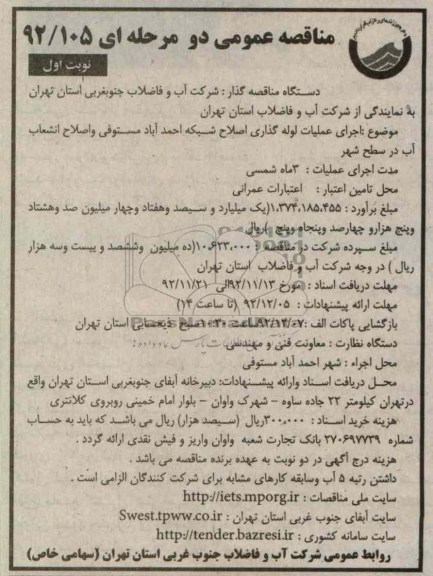 مناقصه عمومی دو مرحله ای ۹۲/۱۰۵
نوبت اول
دستگاه مناقصه گذار : شرکت آب و فاضلاب جنوبغربی استان تهران
به نمایندگی از شرکت آب و فاضلاب استان تهران
موضوع :اجرای عملیات لوله گذاری اصلاح شبکه احمد آباد مستوفی واصلاح انشعاب
آب در سطح شهر
مدت اجرای عملیات : ۳ماه شمسی
محل تامین اعتبار : اعتبارات عمرانی
مبلغ برآورد : ۱،۳۷۴،۱۸۵،۴۵۵(یک میلیارد و سیصد وهفتاد وچهار میلیون صد وهشتاد
وپنج هزارو چهارصد وپنجاه وپنج )ریال
مبلغ سپرده شرکت در مناقصه : ۱۰،۶۲۳،۰۰۰(ده میلیون وششصد و بیست وسه هزار
ریال ) در وجه شرکت آب و فاضلاب استان تهران
مهلت دریافت اسناد : مورخ ۹۲/۱۱/۱۳الی ۹۲/۱۱/۲۱
مهلت ارائه پیشنهادات : ۹۲/۱۲/۰۵ (تا ساعت ۱۴)
بازگشایی پاکات الف :۹۲/۱۲/۰۷ساعت ۱۰:۳۰صبح ذیحسابی استان تهران
دستگاه نظارت : معاونت فنی و مهندسی
محل اجراء : شهر احمد آباد مستوفی
محل دریافت اسناد وارائه پیشنهادات: دبیرخانه آبفای جنوبغربی استان تهران واقع
درتهران کیلومتر ۲۲ جاده ساوه – شهرک واوان – بلوار امام خمینی روبروی کلانتری
هزینه خرید اسناد : ۳۰۰،۰۰۰ریال (سیصد هزار) ریال می باشد که باید به حساب
شماره ۲۷۰۶۹۷۷۳۹ بانک تجارت شعبه واوان واریز و فیش نقدی ارائه گردد .
هزینه درج آگهی در دو نوبت به عهده برنده مناقصه می باشد .
داشتن رتبه ۵ آب وسابقه کارهای مشابه برای شرکت کنندگان الزامی است .
سایت ملی مناقصات : http://iets.mporg.ir
سایت آبفای جنوب غربی استان تهران : Swest.tpww.co.ir
سایت سامانه کشوری : http://tender.bazresi.ir
روابط عمومی شرکت آب و فاضلاب جنوب غربی استان تهران (سهامی خاص)